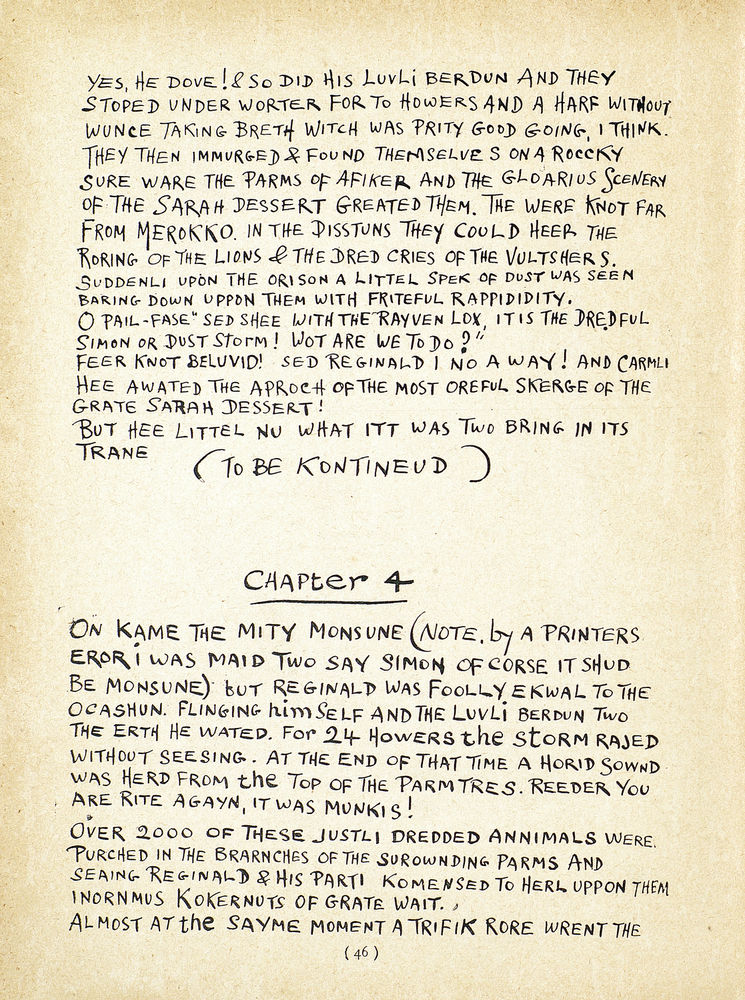 YES, HE DOVE! & SO DID HIS LUVLI BERDUN AND THEY
STOPED UNDER WORTER FOR TO HOWERS AND A HARF WITHOUT
WUNCE TAKING BRETH WITCH WAS PRITY GOOD GOING, I THINK.
THEY THEN IMMURGED & FOUND THEMSELVES ON A ROCCKY
SURE WARE THE PARMS OF AFIKER AND THE GLOARIUS SCENERY
OF THE SARAH DESSERT GREATED THEM. THE WERE KNOT FAR
FROM MEROKKO. IN THE DISSTUNS THEY COULD HEER THE
RORING OF THE LIONS & THE DRED CRIES OF THE VULTSHERS.
SUDDENLI UPON THE ORISON A LITTEL SPEK OF DUST WAS SEEN
BARING DOWN UPPON THEM WITH FRITEFUL RAPPIDIDITY.
O PAIL-FASE" SED SHEE WITH THE RAYVEN LOX, IT IS THE DREDFUL
SIMON OR DUST STORM! WOT ARE WE TO DO?"
FEER KNOT BELUVID! SED REGINALD I NO A WAY! AND CARMLI
HEE AWATED THE APROCH OF THE MOST OREFUL SKERGE OF THE
GRATE SARAH DESSERT!
BUT HEE LITTEL NU WHAT ITT WAS TWO BRING IN ITS
TRANE
(TO BE KONTINEUD)
CHAPTER 4
ON KAME THE MITY MONSUNE (NOTE. by A PRINTERS
EROR i WAS MAID TWO SAY SIMON OF CORSE IT SHUD
BE MONSUNE) but REGINALD WAS FOOLLY EKWAL TO THE
OCASHUN. FLINGING himSELF AND THE LUVLI BERDUN TWO
THE ERTH HE WATED. FOR 24 HOWERS the STORM RAJED
WITHOUT SEESING. AT THE END OF THAT TIME A HORID SOWND
WAS HERD FROM the TOP OF THE PARMTRES. REEDER YOU
ARE RITE AGAYN, IT WAS MUNKIS!
OVER 2000 OF THESE JUSTLI DREDDED ANNIMALS WERE.
PURCHED IN THE BRARNCHES OF THE SUROWNDING PARMS AND
SEAING REGINALD & HIS PARTI KOMENSED TO HERL UPPON THEM
INORNMUS KOKERNUTS OF GRATE WAIT.
ALMOST AT the SAYME MOMENT A TRIFIK RORE WRENT THE
(46)